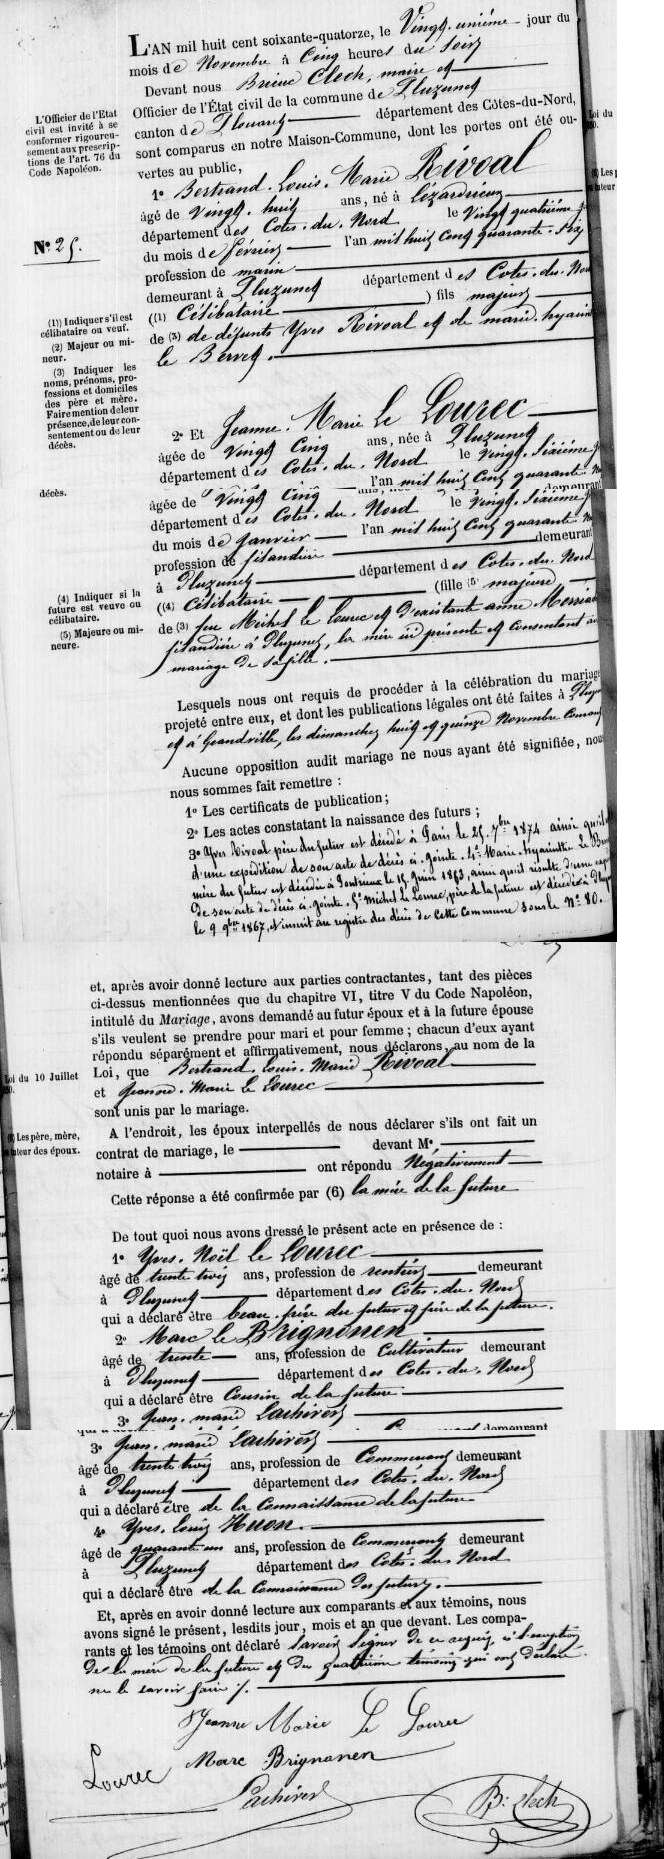 L'AN mil huit cent soixante-quatorze, le Vingt-unième jour du
mois de Novembre à Cinq heures du Soir
Devant nous Brieuc Clech, maire et
Officier de l'État civil de la commune de Pluzunet
canton de Plouaret département des Côtes-du-Nord,
sont comparus en notre Maison-Commune, dont les portes ont été ou-
vertes au public,
L'Officier de l'Etat
civil est invité à se
conformer rigoureu-
sement aux prescrip-
tions de l'art. 76 du
Code Napoléon.
N° 25.
1° Bertrand-Louis-Marie Rivoal
âgé de Vingt-huit ans, né à Lézardrieux
département des Cotes-du-Nord le Vingt quatrième
du mois de février l'an mil huit cent quarante-six
profession de marin
demeurant à Pluzunet département des Cotes-du-Nord
((1) Célibataire ) fils majeur
de (3) de défunts Yves Rivoal et de marie-hyacin
le Berret.
(1) Indiquer s'il est
célibataire ou veuf.
(2) Majeur ou mi-
neur.
(3) Indiquer les
noms, prénoms, pro-
fessions et domiciles
des père et mère.
Faire mention de leur
présence, de leur con-
sentement ou de leur
décès.
2° Et Jeanne-Marie Le Lourec
âgée de Vingt Cinq ans, née à Pluzunet
département des Cotes-du-Nord le Vingt-Sixième
l'an mil huit Cent quarante
décès.
âgée de Vingt Cinq
département des Cotes-du-Nord le Vingt-Sixième
du mois de Janvier l'an mil huit Cent quarante
profession de filandière demeurant
à Pluzunet département des Cotes-du-Nord
((4) Célibataire (fille (5) majeure)
de (3) feu Michel Le Lourec et d'existante anne
filandière à Pluzunet, la mère ici présente et consentant au
mariage de sa fille.
(4) Indiquer si la
future est veuve ou
célibataire.
(5) Majeure ou mi-
neure.
Lesquels nous ont requis de procéder à la célébration du mariage
projeté entre eux, et dont les publications légales ont été faites à
et à Grandville, les dimanches huit et quinze Novembre
Aucune opposition audit mariage ne nous ayant été signifiée, nous
nous sommes fait remettre :
1° Les certificats de publication;
2° Les actes constatant la naissance des futurs;
3° Yves Rivoal père du futur est décédé à Paris le 25 7bre 1874 ainsi qu'il
d'une expédition de son acte de décès ci-jointe. 4° Marie-Hyacinthe Le
mère du futur est décédée à Pontrieux le 15 Juin 1863, ainsi qu'il résulte d'une
de son acte de décès ci-jointe. 5° Michel Le Lourec, père de la future est décédé à
le 9 9bre 1867, et inscrit au registre des décès de cette Commune sous le N° 80.
et, après avoir donné lecture aux parties contractantes, tant des pièces
ci-dessus mentionnées que du chapitre VI, titre V du Code Napoléon,
intitulé du Mariage, avons demandé au futur époux et à la future épouse
s'ils veulent se prendre pour mari et pour femme; chacun d'eux ayant
répondu séparément et affirmativement, nous déclarons, au nom de la
Loi, que Bertrand-Louis-Marie Rivoal
et Jeanne-Marie Le Lourec
sont unis par le mariage.
Loi du 10 Juillet
A l'endroit, les époux interpellés de nous déclarer s'ils ont fait un
contrat de mariage, le devant Me
notaire à ont répondu Négativement
Cette réponse a été confirmée par (6) la mère de la future
(6) Les père, mère,
tuteur des époux.
De tout quoi nous avons dressé le présent acte en présence de :
1° Yves-Noël Le Lourec
âgé de trente trois ans, profession de rentier demeurant
à Pluzunet département des Cotes-du-Nord
qui a déclaré être beau-frère du futur et frère de la future.
2° Marc le Brignonen
âgé de trente ans, profession de Cultivateur demeurant
à Pluzunet département des Cotes-du-Nord
qui a déclaré être Cousin de la future
3° Jean-marie Lachiver
3° Jean-marie Lachiver
âgé de trente trois ans, profession de Commerçant demeurant
à Pluzunet département des Cotes-du-Nord
qui a déclaré être de la Connaissance de la future
4° Yves-Louis Huon
âgé de quarante un ans, profession de Commerçant demeurant
à Pluzunet département des Cotes-du-Nord
qui a déclaré être de la Connaissance des futurs.
Et, après en avoir donné lecture aux comparants et aux témoins, nous
avons signé le présent, lesdits jour, mois et an que devant. Les compa-
rants et les témoins ont déclaré savoir Signer de ce requis, à l'exception
de la mère de la future et du quatrième témoin qui ont déclaré
ne le savoir faire ./.
Jeanne Marie Le Lourec
Lourec Marc Brignonen
Lachiver B: Clech